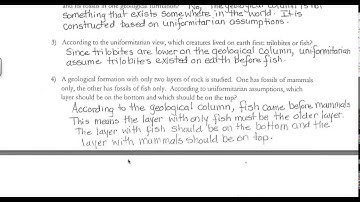 and its fossils in one geological formation? No, The geological column is not
something that exists somewhere in the world. It is
constructed based on uniformitarian assumptions.
3) According to the uniformitarian view, which creatures lived on earth first: trilobites or fish?
Since trilobites are lower on the geological column, uniformitarian
assume trilobites existed on earth before fish.
4) A geological formation with only two layers of rock is studied. One has fossils of mammals
only, the other has fossils of fish only. According to uniformitarian assumptions, which
layer should be on the bottom and which should be on the top?
According to the geological column, fish came before mammals
This means the layer with only fish must be the older layer.
The layer with fish should be on the bottom and the
layer with mammals should be on top.